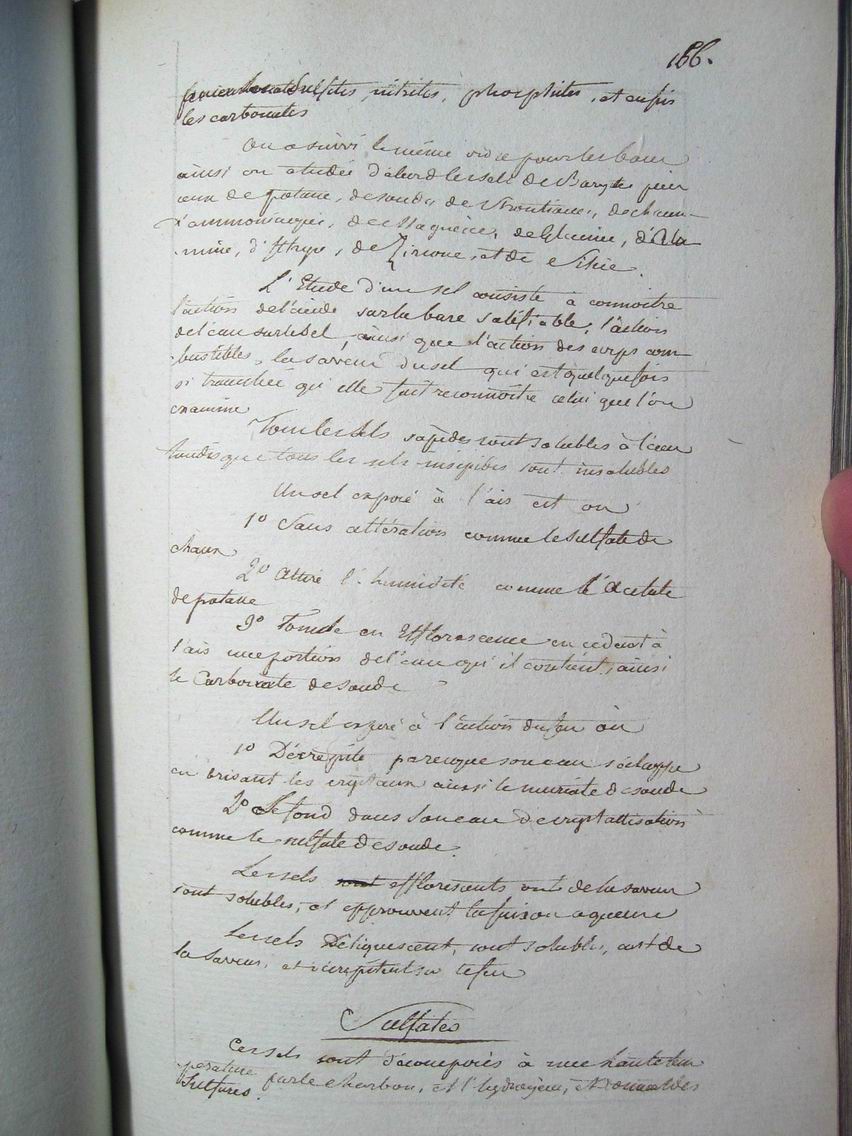 166.
sulfites, nitrites, phosphites, et enfin
les carbonates
On a suivi le même ordre pour les bases
ainsi on étudie d'abord les sels de Baryte puis
ceux de potasse, de soude, de Strontiane, de chaux
d'ammoniaque, de Magnésie, de Glucine, d'Alu
mine, d'Ittrya, de Zircone, et de Silice.
L'Etude d'un sel consiste à connoitre
l'action de l'acide sur la base salifiable, l'action
de l'eau sur le sel, ainsi que l'action des corps com
bustibles, la saveur du sel qui est quelquefois
si tranchée qu'elle fait reconnoitre celui que l'on
examine
Tous les sels sapides sont solubles à l'eau
tandis que tous les sels insipides sont insolubles
Un sel exposé à l'air est ou
1º Sans altération comme le sulfate de
chaux
2º Attire l'humidité comme l'Acétate
de potasse
3º Tombe en Efflorescence en cedant à
l'air une portion de l'eau qu'il contient, ainsi
le Carbonate de soude
Un sel exposé à l'action du feu ou
1º Décrépite parceque son eau s'échappe
en brisant les cryptaux ainsi le muriate de soude
2º Se fond dans son eau de cryptallisation
comme le sulfate de soude.
Les sels sont efflorescents ont de la saveur
sont solubles, et épprouvent la fusion aqueuse
Les sels Déliquescent, sont solubles, ont de
la Saveur, et décrépitent sur le feu
Sulfates
Ces sels sont décomposés à une haute tem
perature par le charbon, et l'hydrogène, et donnent des
Sulfures.